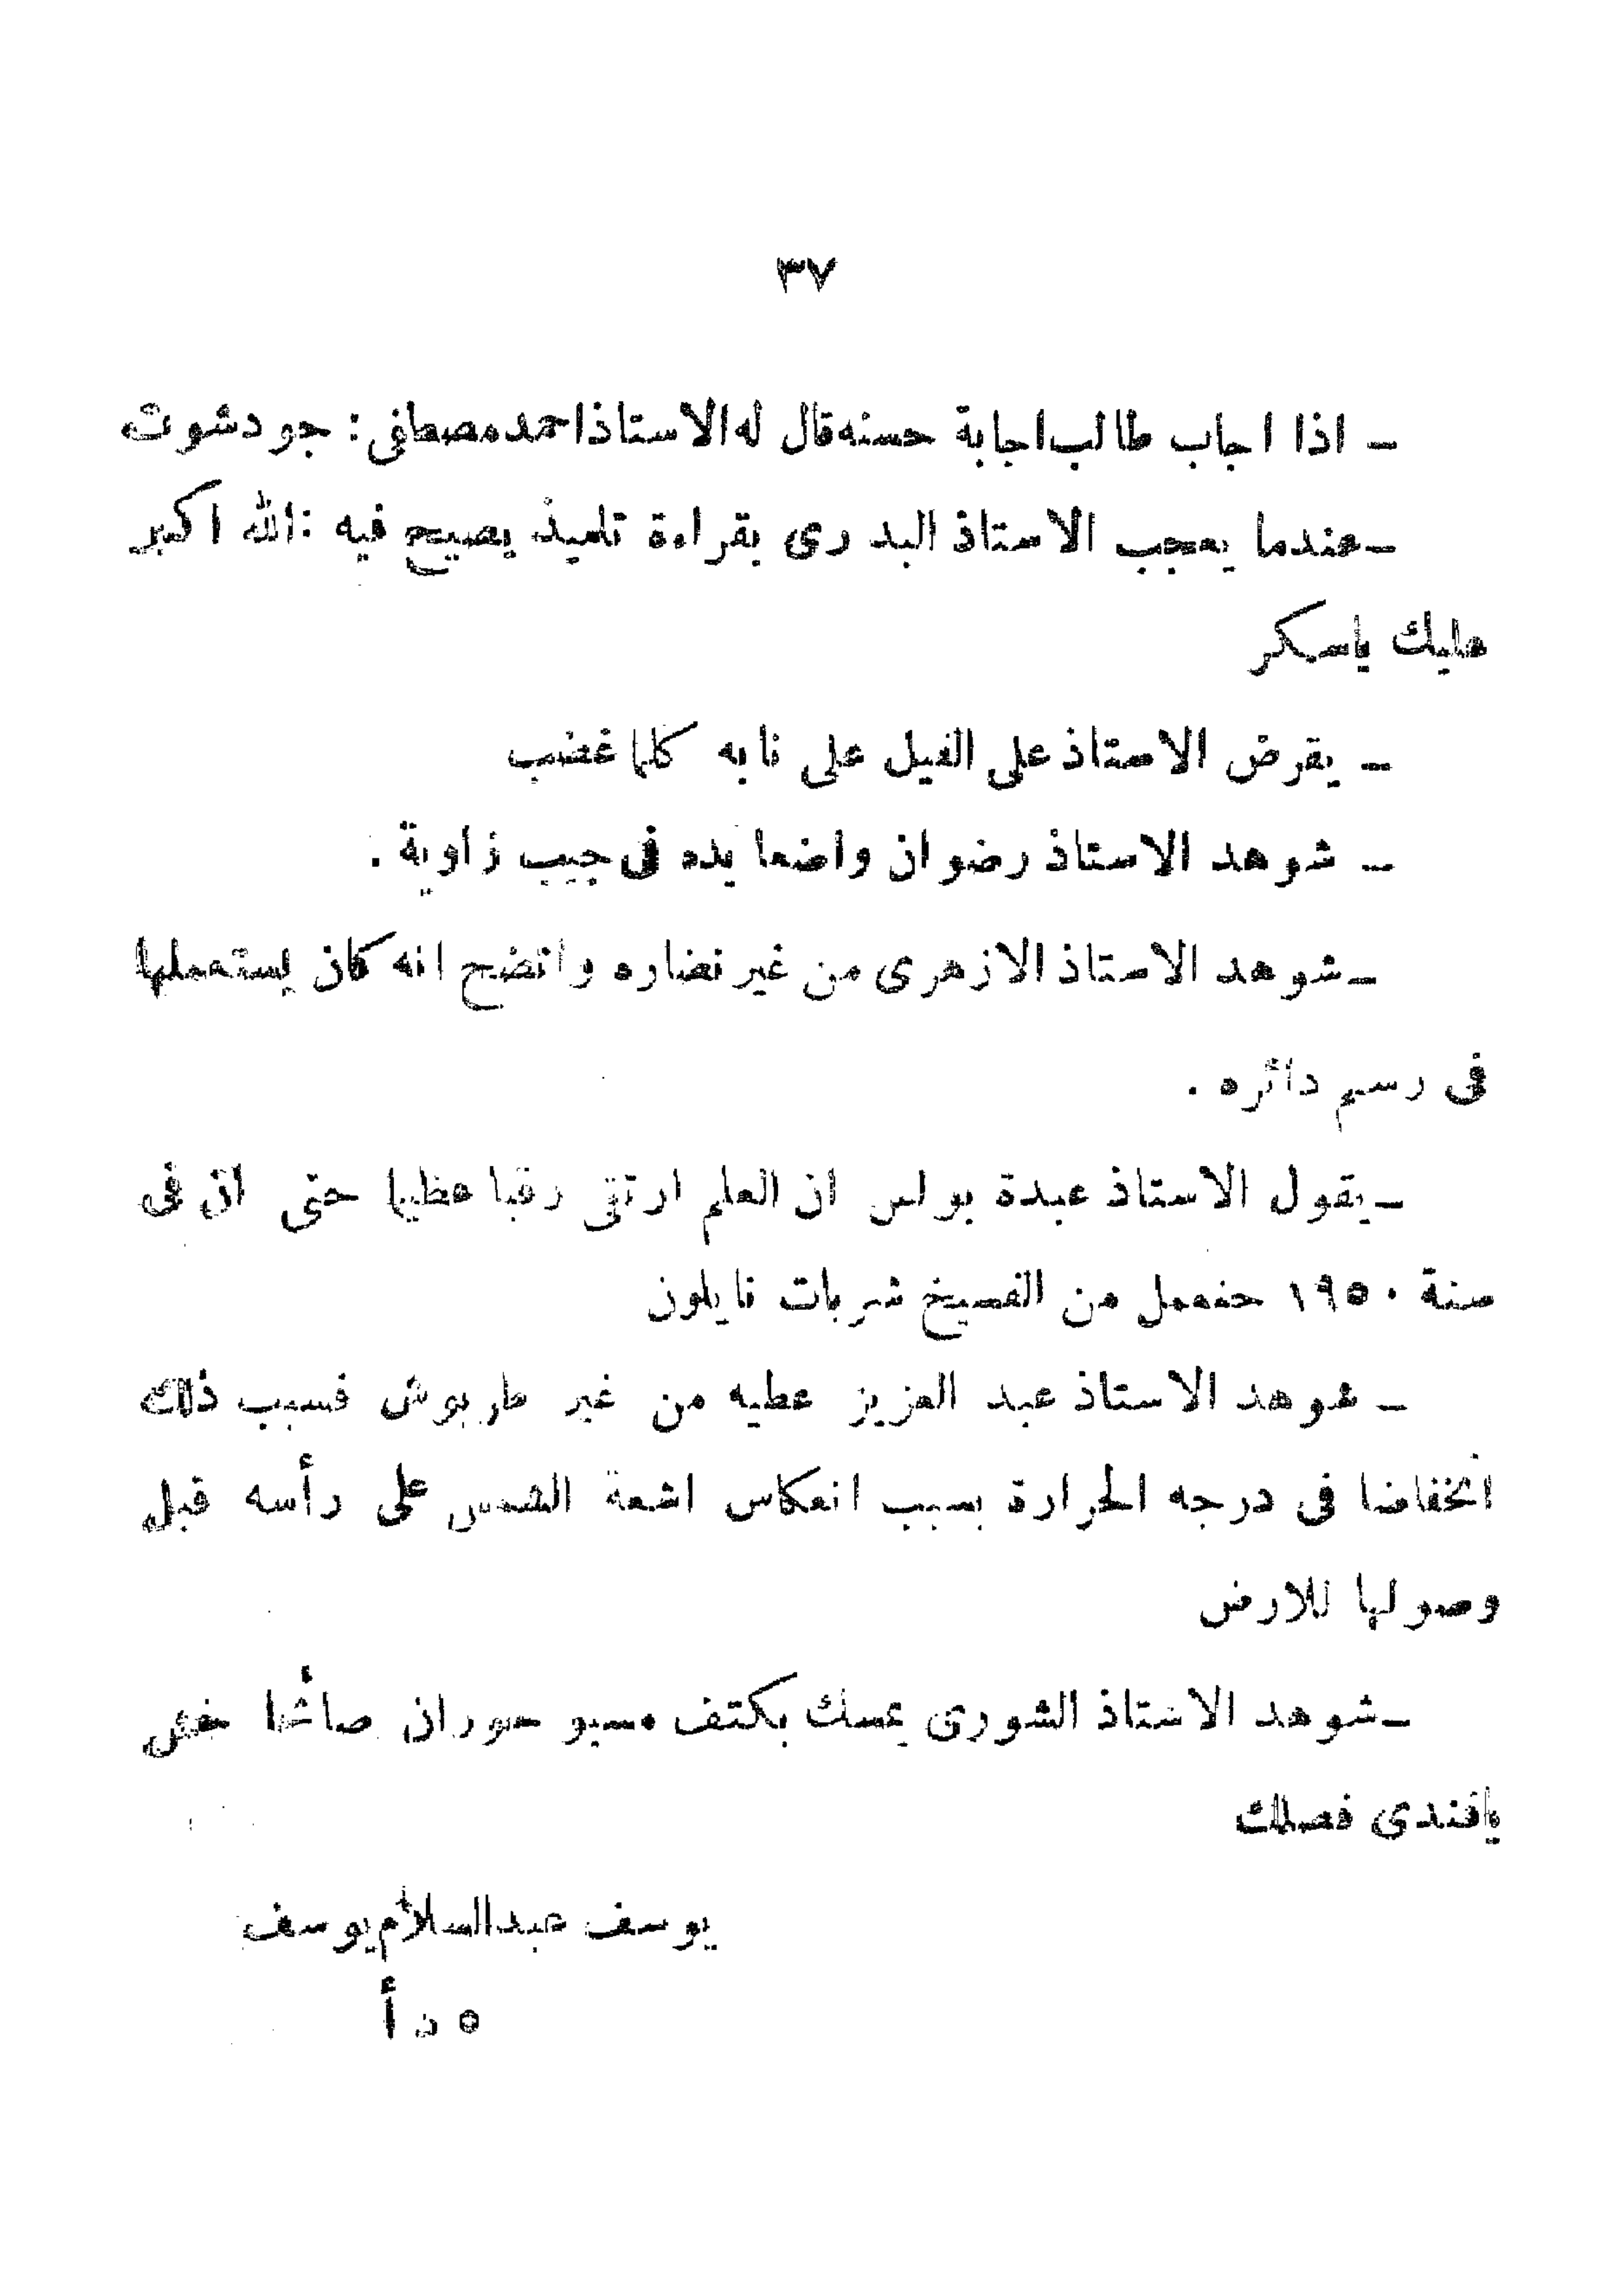 ٣٧
ـ اذا اجاب طالب اجابة حسنه قال له الاستاذ احمد مصطفى : جود شوت
ـ عندما يعجب الاستاذ البدرى بقراءة تلميذ يصيح فيه : الله اكبر
عليك ياسكر
ـ يقرض الاستاذ على الفيل على نابه كلما غضب
ـ شوهد الاستاذ رضوان واضعا يده فى جيب زاوية .
ـ شوهد الاستاذ الازهرى من غير نضاره واتضح انه كان يستعملها
فى رسم دائره .
ـ يقول الاستاذ عبدة بولس ان العلم ارتقى رقيا عظيما حتى ان فى
سنة ١٩٥٠ حنعمل من الفسيخ شربات نايلون
ـ شوهد الاستاذ عبد العزيز عطيه من غير طربوش فسبب ذلك
انخفاضا فى درجه الحرارة بسبب انعكاس اشعة الشمس على رأسه قبل
وصولها للارض
ـ شوهد الاستاذ الشورى يمسك بكتف مسيو حوران صائحا خش
يافندى فصلك
يوسف عبدالسلام يوسف